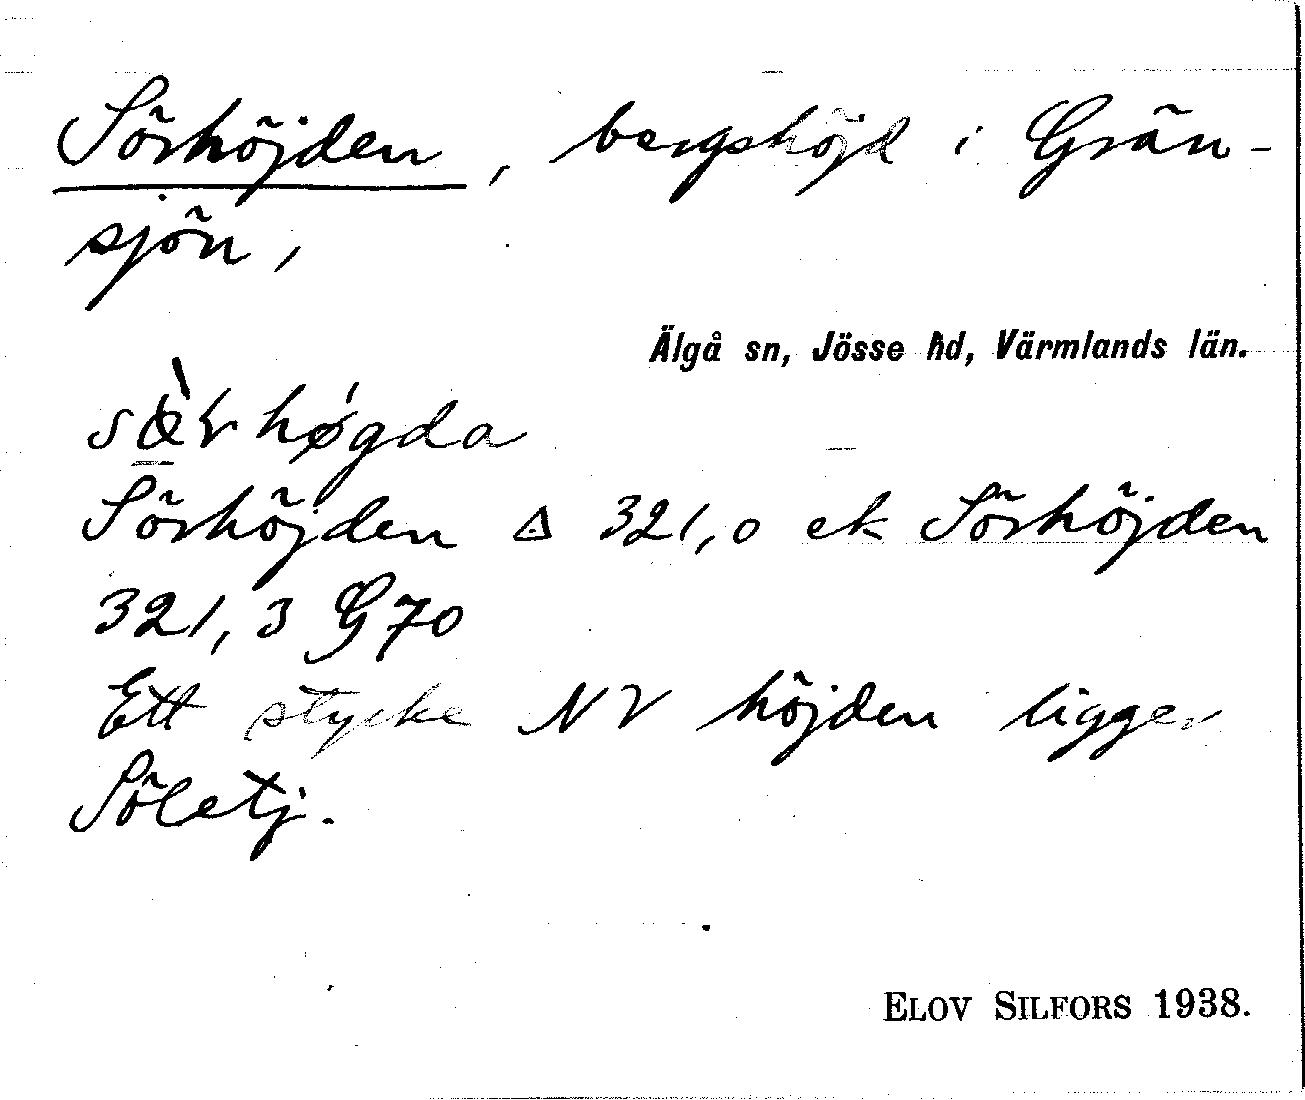 Sörhöjden, bergshöjd i Grän-
sjön,
Älgå sn, Jösse hd, Värmlands län.
sœ̀rhǿgda
Sörhöjden ⚠ 321,0 ek Sörhöjden
321,3 G70
Ett stycke NV höjden ligger
Söletj.
ELOV SILFORS 1938.